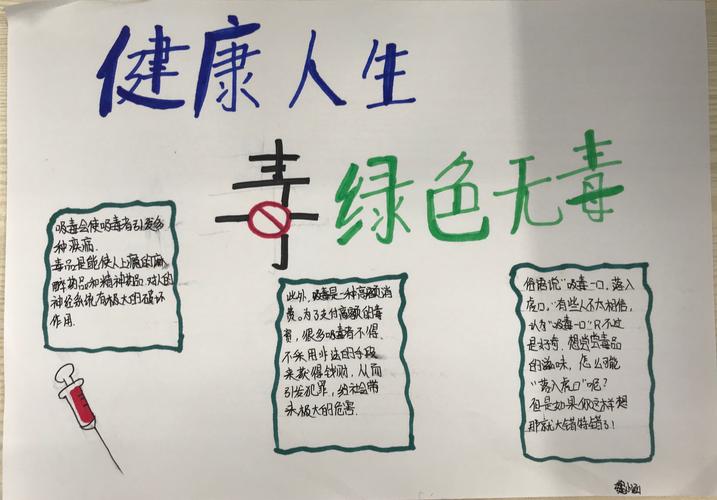 健康人生
绿色无毒
吸毒会使吸毒者引发多
种疾病.
毒品是能使人上瘾的麻
醉药品和精神药品.对人的
神经系统有极大的破坏
作用.
此外,吸毒是一种高额消
费.为了支付高额的毒
资,很多吸毒者不得
不采用非法的手段
来获得钱财,从而
引发犯罪,给社会带
来极大的危害.
俗语说"吸毒一口,落入
虎口."有些人不大相信,
认为"吸毒一口"只不过
是好奇.想尝尝毒品
的滋味,怎么可能
"落入虎口"呢?
但是如果你这样想
那就大错特错了!